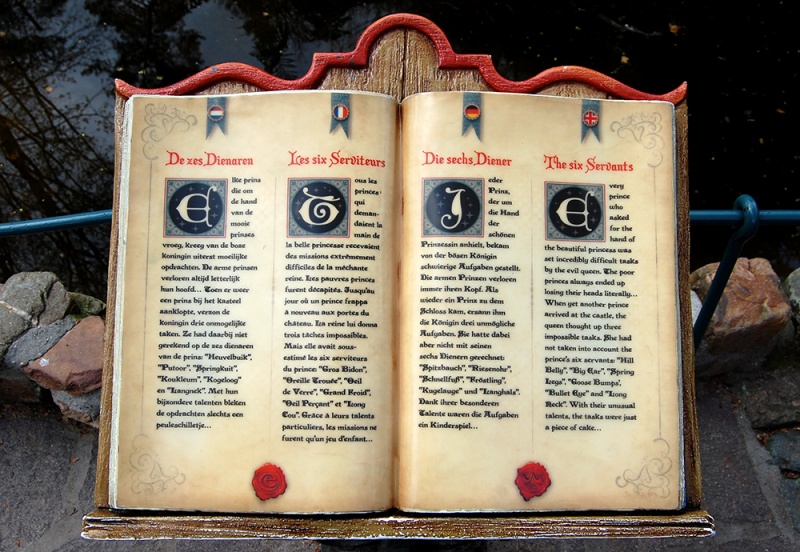 De zes Dienaren
Elke prins
die om
de hand
van de
mooie
prinses
vroeg, kreeg van de boze
koningin uiterst moeilijke
opdrachten. De arme prinsen
verloren altijd letterlijk
hun hoofd... Toen er weer
een prins bij het kasteel
aanklopte, verzon de
koningin drie onmogelijke
taken. Ze had daarbij niet
gerekend op de zes dienaren
van de prins: "Heuvelbuik",
"Putoor", "Springkuit",
"Koukleum", "Kogeloog"
en "Langnek". Met hun
bijzondere talenten bleken
de opdrachten slechts een
peuleschilletje...
Les six Serviteurs
Tous les
princes
qui
deman-
daient la
main de
la belle princesse recevaient
des missions extrêmement
difficiles de la méchante
reine. Les pauvres princes
furent décapités. Jusqu'au
jour où un prince frappa
à nouveau aux portes du
château. La reine lui donna
trois tâches impossibles.
Mais elle avait sous-
estimé les six serviteurs
du prince "Gros Bidon",
"Oreille Trouée", "Oeil
de Verre", "Grand Froid",
"Oeil Perçant" et "Long
Cou". Grâce à leurs talents
particuliers, les missions ne
furent qu'un jeu d'enfant...
Die sechs Diener
Jeder
Prinz,
der um
die Hand
der
schönen
Prinzessin anhielt, bekam
von der bösen Königin
schwierige Aufgaben gestellt.
Die armen Prinzen verloren
immer ihren Kopf. Als
wieder ein Prinz zu dem
Schloss kam, ersann ihm
die Königin drei unmögliche
Aufgaben. Sie hatte dabei
aber nicht mit seinen
sechs Dienern gerechnet:
"Spitzbauch", "Riesenohr",
"Schnellfuß", "Fröstling",
"Kugelauge" und "Langhals".
Dank ihrer besonderen
Talente waren die Aufgaben
ein Kinderspiel...
The six Servants
Every
prince
who
asked
for the
hand of
the beautiful princess was
set incredibly difficult tasks
by the evil queen. The poor
princes always ended up
losing their heads literally...
When yet another prince
arrived at the castle, the
queen thought up three
impossible tasks. She had
not taken into account the
prince's six servants: "Hill
Belly", "Big Ear", "Spring
Legs", "Goose Bumps",
"Bullet Eye" and "Long
Neck". With their unusual
talents, the tasks were just
a piece of cake...